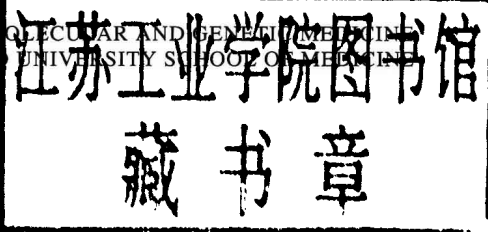 OLECULAR AND GENETIC MEDICINE
UNIVERSITY SCHOOL OF MEDICINE
江苏工业学院图书馆
藏书章